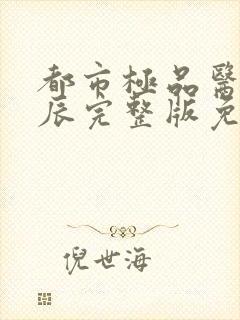 都市極品醫
辰完整版免
倪世海